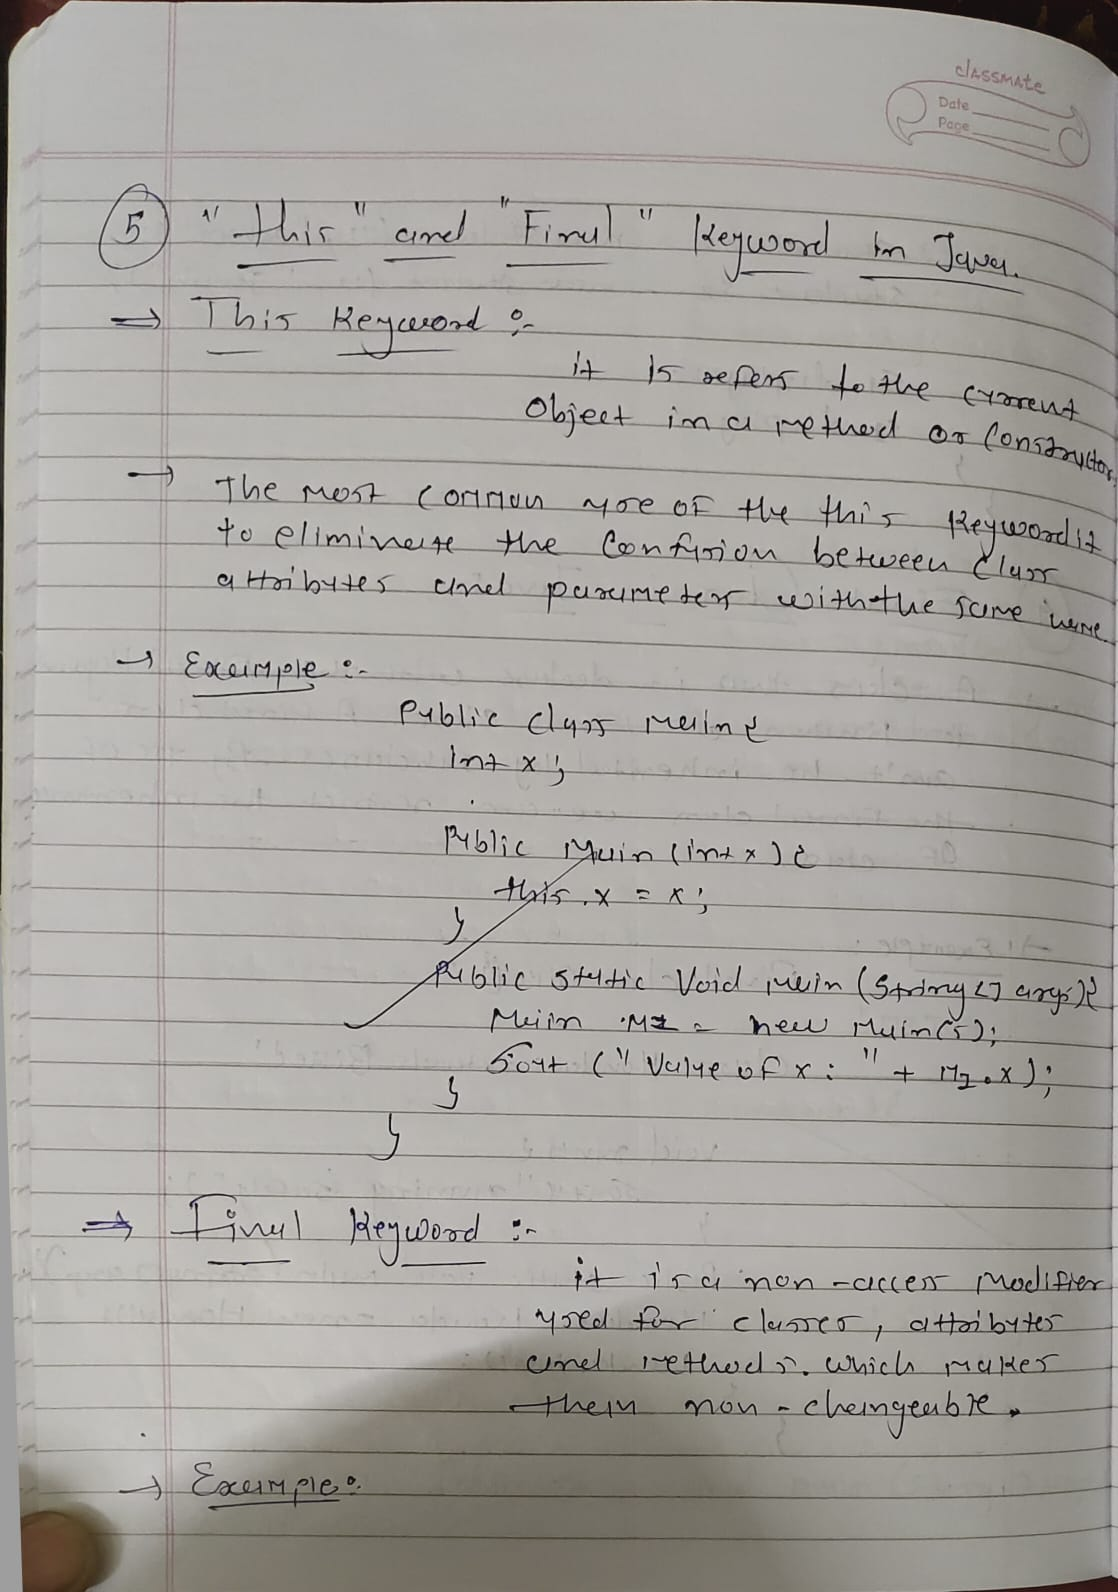 classmate
Date
Page
5 "this" and "Final" Keyword in Java.
⇒ This Keyword :-
it is refers to the current
Object in a method or Constructor,
→ The most common use of the this Keyword is
to eliminate the Confusion between Class
attributes and parameters with the same name
→ Example :-
Public Class Main {
int x ;
Public Main (int x) {
this.x = x ;
}
Public Static Void main (String [] args) {
Main = new Main(5);
Sout (" Value of x : " + .x );
}
}
⇒ Final Keyword :-
it is a non-access Modifier
used for classes, attributes
and methods. which makes
them non-changeable.
→ Example :